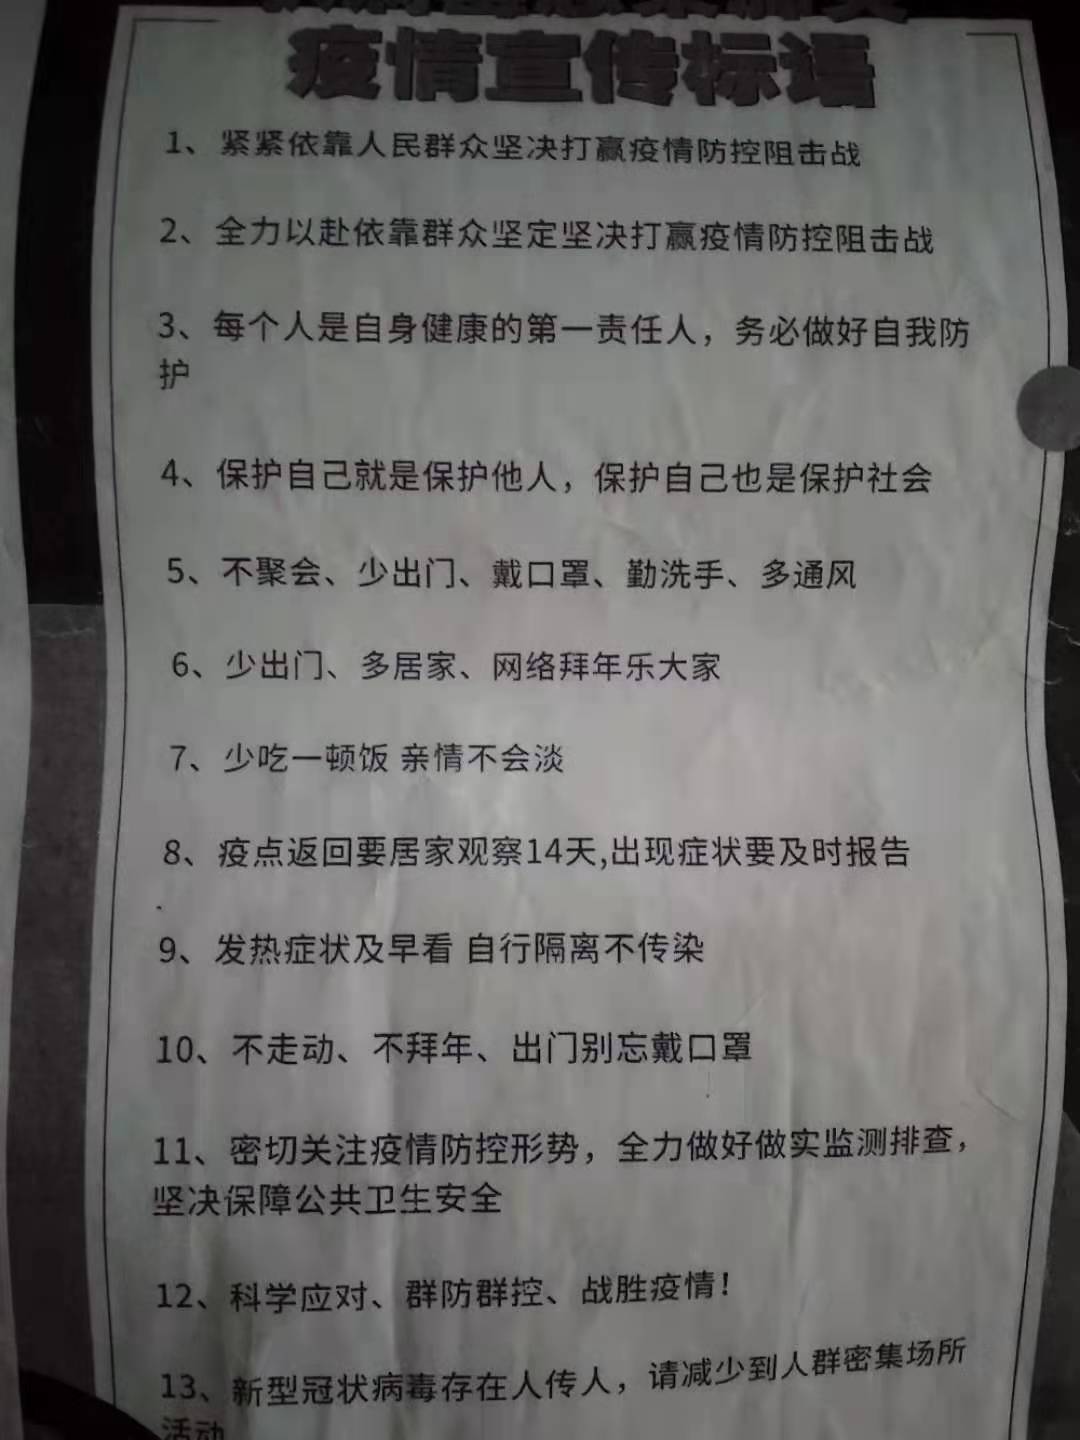 疫情宣传标语
1、紧紧依靠人民群众坚决打赢疫情防控阻击战
2、全力以赴依靠群众坚定坚决打赢疫情防控阻击战
3、每个人是自身健康的第一责任人，务必做好自我防
护
4、保护自己就是保护他人，保护自己也是保护社会
5、不聚会、少出门、戴口罩、勤洗手、多通风
6、少出门、多居家、网络拜年乐大家
7、少吃一顿饭 亲情不会淡
8、疫点返回要居家观察14天,出现症状要及时报告
9、发热症状及早看 自行隔离不传染
10、不走动、不拜年、出门别忘戴口罩
11、密切关注疫情防控形势，全力做好做实监测排查，
坚决保障公共卫生安全
12、科学应对、群防群控、战胜疫情！
13、新型冠状病毒存在人传人，请减少到人群密集场所
活动